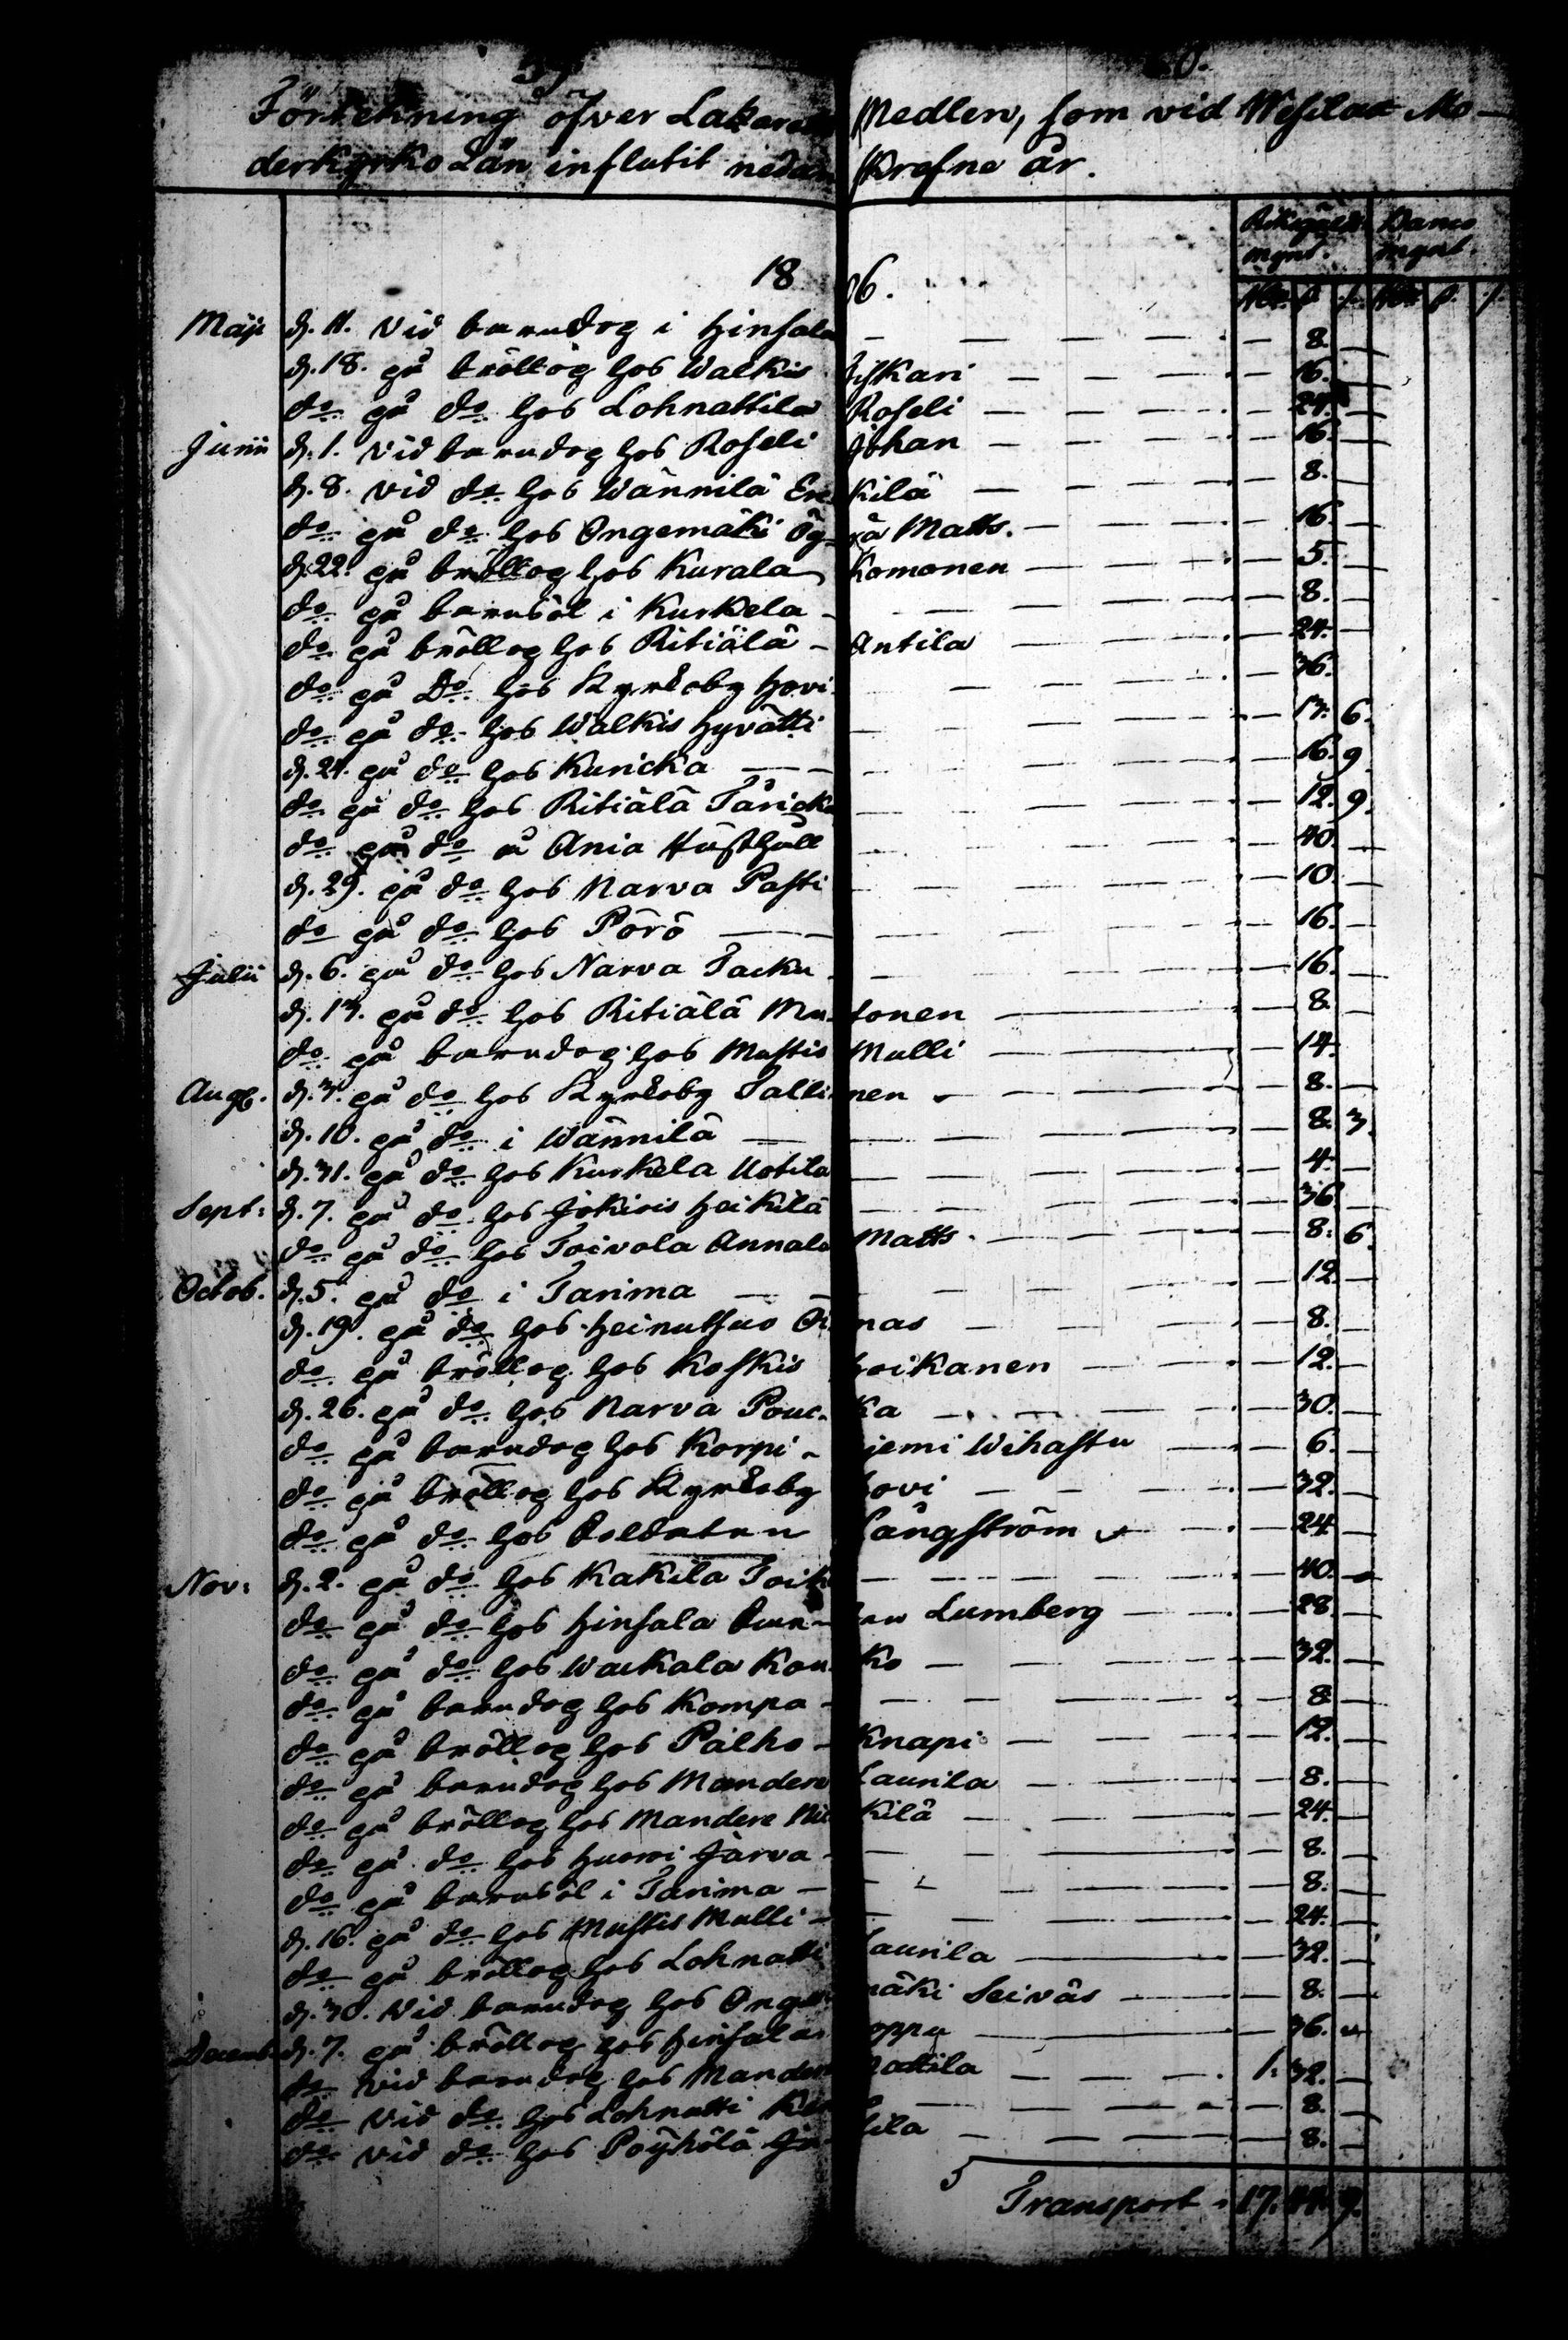 Förtekning öfver Lazaretts Medlen, som vid Wesilax Mo-
derkyrko Län influtit nedan skrefne år.
Riksgälds mynt. Banco mynt.
1806.
Rdr. s. r. Rdr. s. r.
Maji d. 11. Vid barndop i Hinsala — 8. —
d. 18. på bröllop hos Walkis Piskari — 16. —
do på do hos Lohnattila Roseli — 24. —
Junii d. 1. Vid barndop hos Roseli Johan — 16. —
d. 8. Vid do hos Wännilä Erkilä — 8. —
do på do hos Ongemäki Matts. — 16. —
d. 22. på bröllop hos Kurala Komonen — 5. —
do på barnsöl i Kurkela — 8. —
do på bröllop hos Ritiälä Antila — 24. —
do på Do hos Kyrkoby Hovi — 36. —
do på do hos Walkis Hyvätti — 17. 6.
d. 24. på do hos Kuricka — 16. 9.
do på do hos Ritiälä — 12. 9.
do på do å Ania Hushåll — 40. —
d. 29. på do hos Narva Pasti — 10. —
do på do hos Pörö — 16. —
Julii d. 6. på do hos Narva Jacku — 16. —
d. 13. på do hos Ritiälä Mutonen — 8. —
do på barndop hos Mustis Mulli — 14. —
Aug. d. 3. på do hos Kyrkoby Tallinen — 8. —
d. 10. på do i Wännilä — 8. 3.
d. 31. på do hos Kurkela Uotila — 4. —
Sept: d. 7. på do hos Jokiois Heikilä — 36. —
do på do hos Toivola Annala Matts. — 8. 6.
Octob. d. 5. på do i Tarima — 12. —
d. 19. på do hos Heinutsuo — 8. —
do på bröllop hos Koskis Hoikanen — 12. —
d. 26. på do hos Narva Poucka — 30. —
do på barndop hos Korpiniemi Wihastu — 6. —
do på bröllop hos Kyrkoby Hovi — 32. —
do på do hos Soldaten Långström — 24 —
Nov: d. 2. på do hos Kakila — 40. —
do på do hos Hinsala Lumberg — 28. —
do på do hos Wackala — 32. —
do på barndop hos Kompa — 8. —
do på bröllop hos Palho Knapi — 12. —
do på barndop hos Mandere Laurila — 8. —
do på bröllop hos Mandere Nickilä — 24. —
do på do hos Huowi Järva — 8. —
do på barnsöl i Tarima — 8. —
d. 16. på do hos Mustis Mulli — 24. —
do på bröllop hos Lohnatti Laurila — 32. —
d. 30. Vid barndop hos Ongemäki Seiväs — 8. —
Decemb. d. 7. på bröllop hos Hinsala — 36. —
do Vid barndop hos Mandere Mattila 1. 32. —
do Vid do hos Lohnatti — 8. —
do Vid do hos Pöyhölä — 8. —
Transport 17. 44. 9.